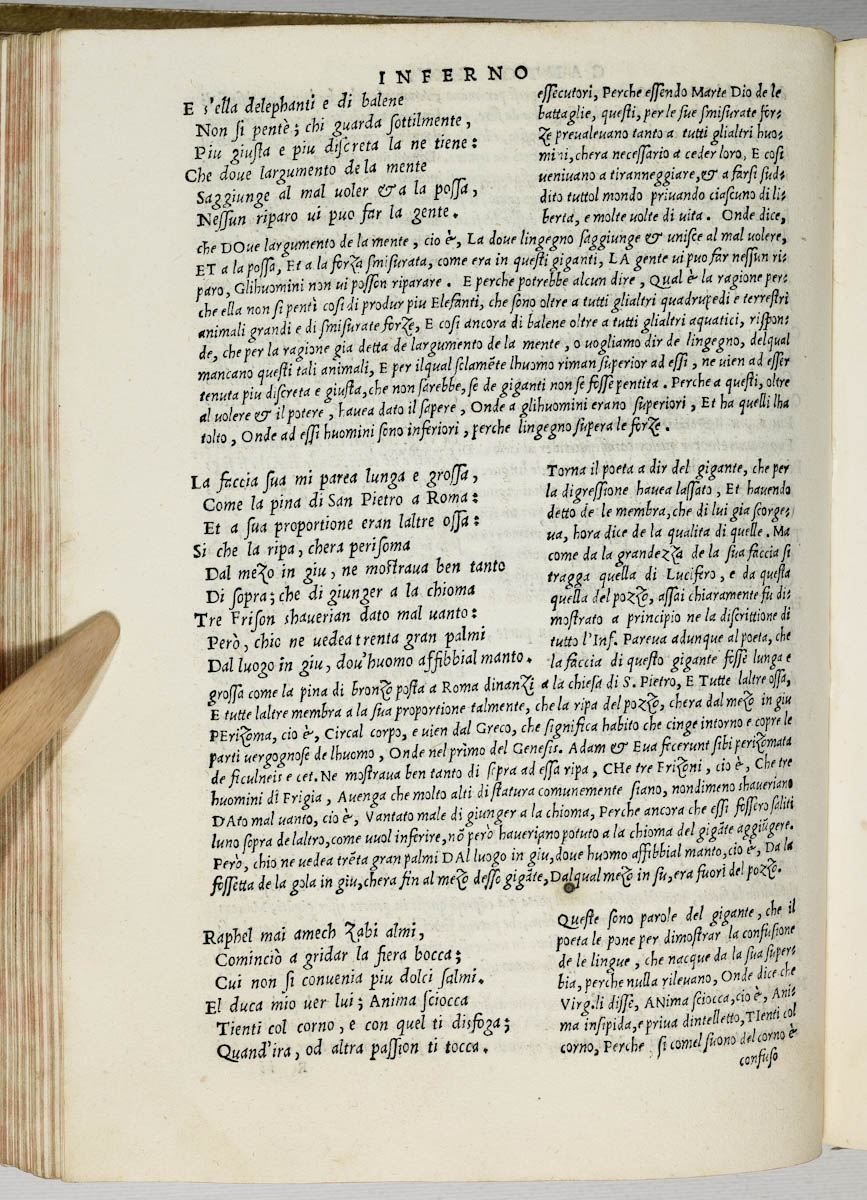 INFERNO
E s'ella delephanti e di balene
Non si pentè; chi guarda sottilmente,
Piu giusta e piu discreta la ne tiene:
Che doue largumento de la mente
Saggiunge al mal uoler & a la possa,
Nessun riparo ui puo far la gente.
essecutori, Perche essendo Marte Dio de le
battaglie, questi, per le sue smisurate for-
ze preualeuano tanto a tutti glialtri huo-
mini, chera necessario a ceder loro, E cosi
ueniuano a tiranneggiare, & a farsi sud-
dito tuttol mondo priuando ciascuno di li-
berta, e molte uolte di uita. Onde dice,
che DOue largumento de la mente, cio è, La doue lingegno saggiunge & unisce al mal uolere,
ET a la possa, Et a la forza smisurata, come era in questi giganti, LA gente ui puo far nessun ri-
paro, Glihuomini non ui posson riparare. E perche potrebbe alcun dire, Qual è la ragione per-
che ella non si pentì cosi di produr piu Elefanti, che sono oltre a tutti glialtri quadrupedi e terrestri
animali grandi e di smisurate forze, E cosi ancora di balene oltre a tutti glialtri aquatici, rispon-
de, che per la ragione gia detta de largumento de la mente, o uogliamo dir de lingegno, delqual
mancano questi tali animali, E per ilqual solamẽte lhuomo riman superior ad essi, ne uien ad esser
tenuta piu discreta e giusta, che non sarebbe, se de giganti non se fosse pentita. Perche a questi, oltre
al uolere & il potere, hauea dato il sapere, Onde a glihuomini erano superiori, Et ha quelli lha
tolto, Onde ad essi huomini sono inferiori, perche lingegno supera le forze.
La faccia sua mi parea lunga e grossa,
Come la pina di San Pietro a Roma:
Et a sua proportione eran laltre ossa:
Si che la ripa, chera perisoma
Dal mezo in giu, ne mostraua ben tanto
Di sopra; che di giunger a la chioma
Tre Frison shauerian dato mal uanto:
Però, chio ne uedea trenta gran palmi
Dal luogo in giu, dou'huomo affibbial manto.
Torna il poeta a dir del gigante, che per
la digressione hauea lassato, Et hauendo
detto de le membra, che di lui gia scorge-
ua, hora dice de la qualita di quelle. Ma
come da la grandezza de la sua faccia si
tragga quella di Lucifero, e da questa
quella del pozzo, assai chiaramente fu di-
mostrato a principio ne la discrittione di
tutto l'Inf. Pareua adunque al poeta, che
la faccia di questo gigante fosse lunga e
grossa come la pina di bronzo posta a Roma dinanzi a la chiesa di S. Pietro, E Tutte laltre ossa,
E tutte laltre membra a la sua proportione talmente, che la ripa del pozzo, chera dal mezo in giu
PErizoma, cio è, Circal corpo, e uien dal Greco, che significa habito che cinge intorno e copre le
parti uergognose de lhuomo, Onde nel primo del Genesis. Adam & Eua fecerunt sibi perizomata
de ficulneis e cet. Ne mostraua ben tanto di sopra ad essa ripa, CHe tre Frizoni, cio è, Che tre
huomini di Frigia, Auenga che molto alti di statura comunemente siano, nondimeno shaueriano
DAto mal uanto, cio è, Vantato male di giunger a la chioma, Perche ancora che essi fossero saliti
luno sopra de laltro, come uuol inferire, nõ però haueriano potuto a la chioma del gigãte aggiũgere.
Però, chio ne uedea trẽta gran palmi DAl luogo in giu, doue huomo affibbial manto, cio è, Da la
fossetta de la gola in giu, chera fin al mezo desso gigãte, Dalqual mezo in su, era fuori del pozzo.
Raphel mai amech zabi almi,
Cominciò a gridar la fiera bocca;
Cui non si conuenia piu dolci salmi.
El duca mio uer lui; Anima sciocca
Tienti col corno, e con quel ti disfoga;
Quand'ira, od altra passion ti tocca.
Queste sono parole del gigante, che il
poeta le pone per dimostrar la confusione
de le lingue, che nacque da la sua super-
bia, perche nulla rileuano, Onde dice che
Virgili disse, ANima sciocca, cio è, Ani-
ma insipida, e priua dintelletto, TIenti col
corno, Perche si comel suono del corno è
confuso